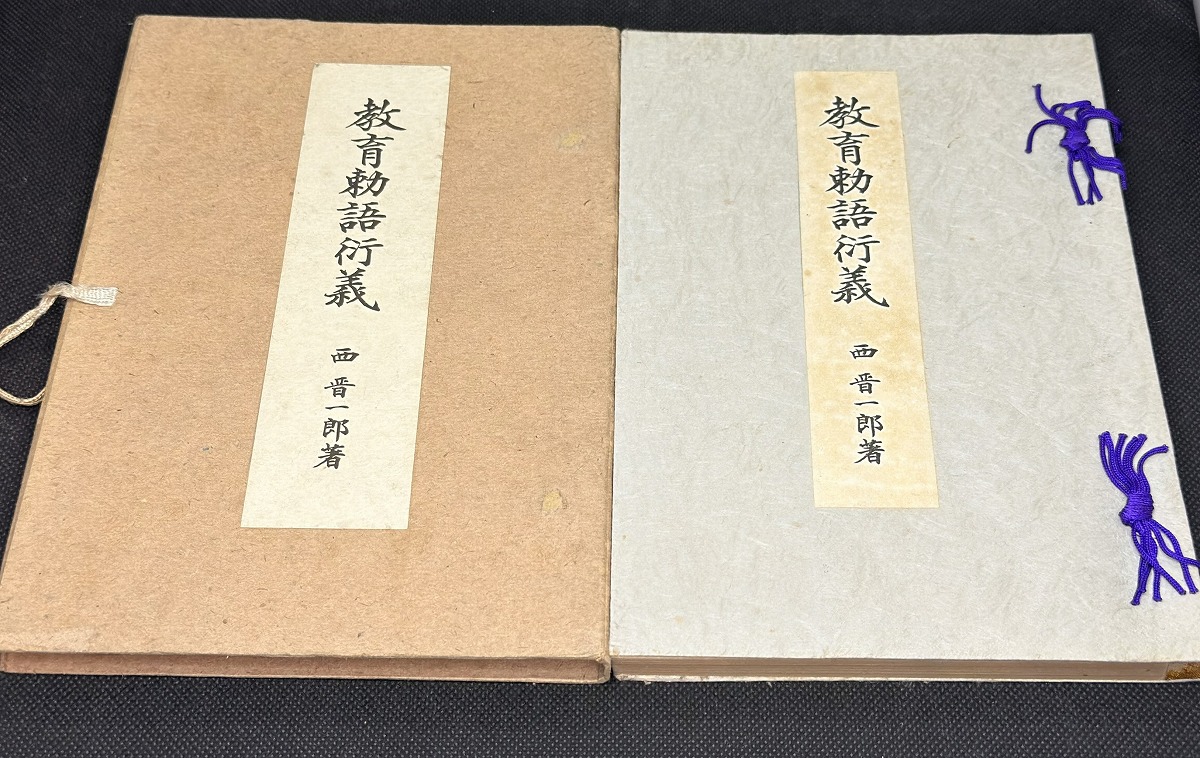 教育勅語衍義
西 晋一郎著
教育勅語衍義
西 晋一郎著